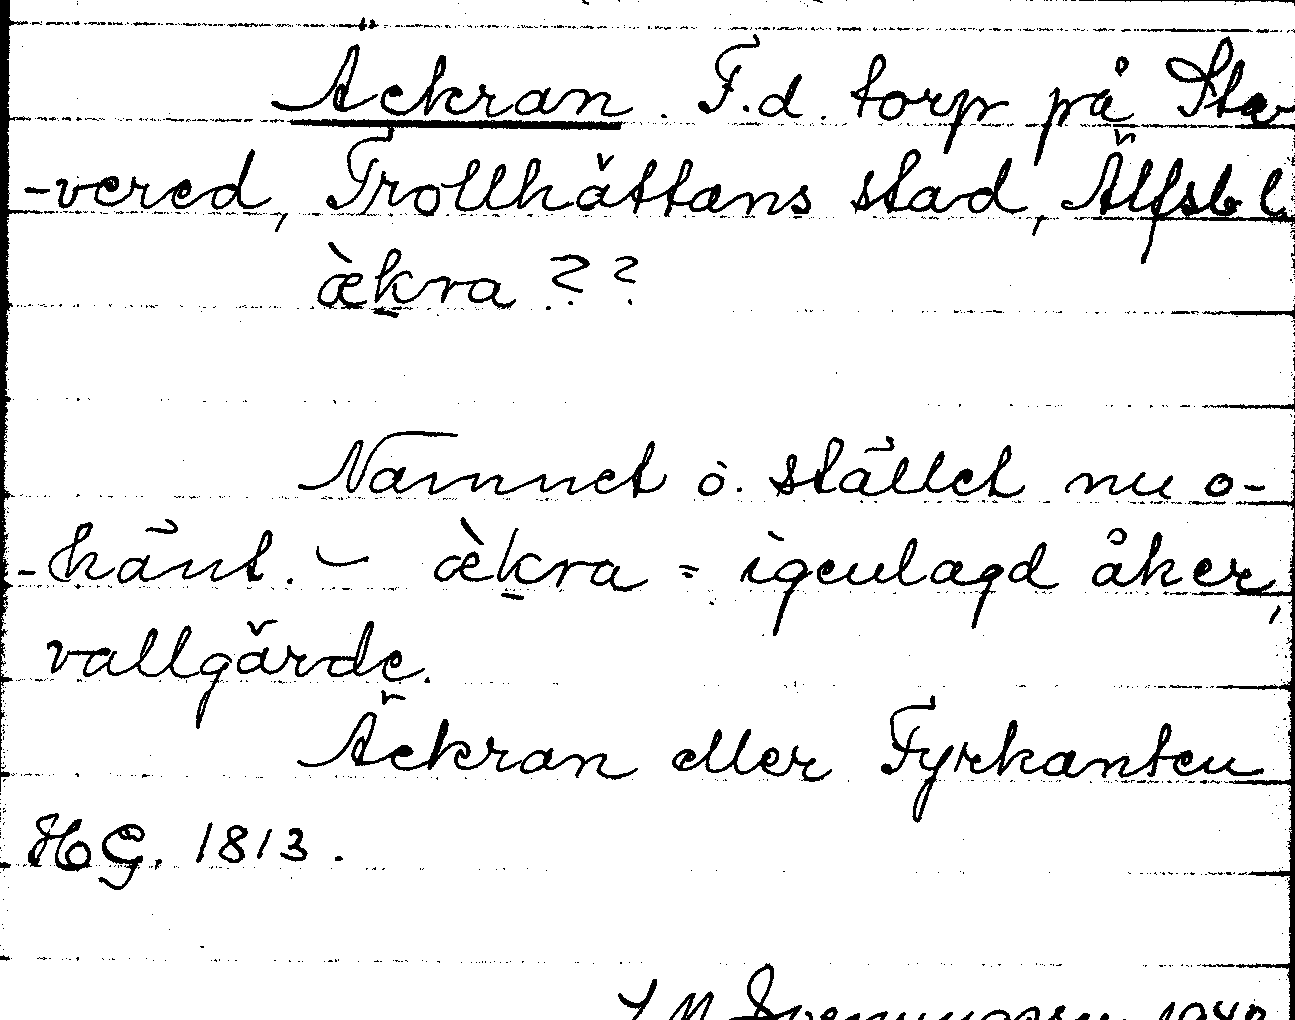 Äckran. F.d. torp på Sta-
-vered, Trollhättans stad, Älfsb l.
æ̀k̠ra ??
Namnet o. stället nu o-
-känt. – æ̀k̠ra = igenlagd åker,
vallgärde.
Äckran eller Fyrkanten
HG. 1813.